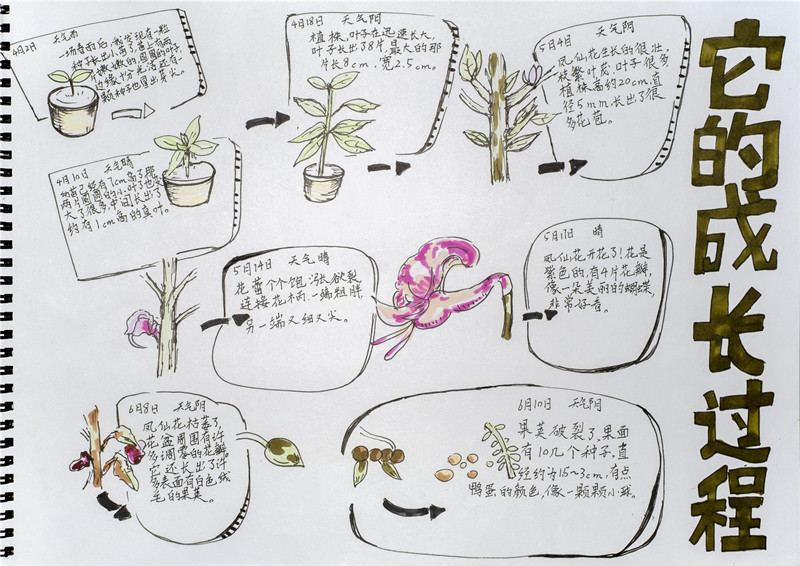 它的成长过程
4月2日 天气雨
一场春雨后,我发现有一粒
种子长出小苗了,苗上有两
片嫩嫩的,圆圆的叶子,
边缘十分光洁,还有一
颗种子也冒出芽尖。
4月10日 天气晴
幼苗已经有1cm高了,那
两片圆圆的小叶子也长
大了很多,中间长出了
约有1cm高的真叶。
4月18日 天气阴
植株,叶子在迅速长大,
叶子长出了8片,最大的那
片长8cm,宽2.5cm。
5月4日 天气阴
凤仙花生长的很壮,
枝繁叶茂,叶子很多
植株高约20cm,直
径5mm,长出了很
多花苞。
5月14日 天气晴
花蕾个个饱涨欲裂
连接花柄,一端粗胖
另一端又细又尖。
5月17日 晴
凤仙花开花了!花是
紫色的,有4片花瓣,
像一朵美丽的蝴蝶,
非常好看。
6月8日 天气阴
凤仙花枯萎了,
花盆周围有许
多凋零的花瓣,
它还长出了许
多表面有白色绒
毛的果荚。
6月10日 天气阴
果荚破裂了,果面
有10几个种子,直
径约为15~3cm,有点
鸭蛋的颜色,像一颗颗小球。